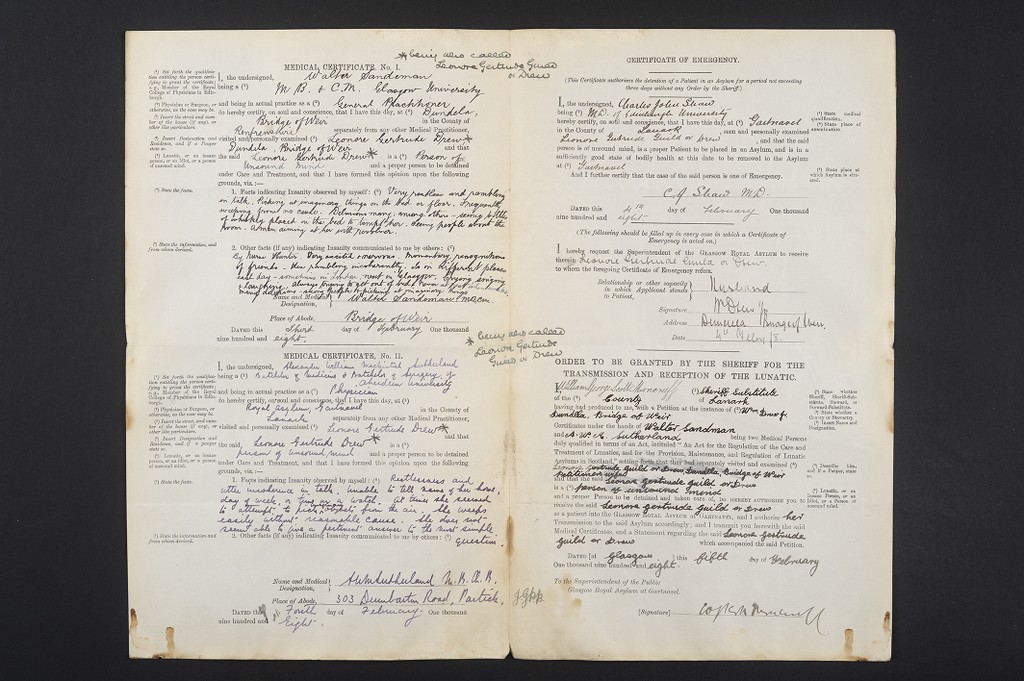 *being also called
Leonora Gertrude Guild
or Drew
MEDICAL CERTIFICATE, No. I.
I, the undersigned, Walter Sandeman
being a (¹) M B. & C.M. Glasgow University
and being in actual practice as a (²) General Practitioner
do hereby certify, on soul and conscience, that I have this day, at (³) Dundela,
Bridge of Weir in the County of
Renfrewshire separately from any other Medical Practitioner,
visited and personally examined (⁴) Leonore Gertrude Drew*
Dundela, Bridge of Weir and that
the said Leonore Gertrude Drew* is a (⁵) Person of
Unsound Mind and a proper person to be detained
under Care and Treatment, and that I have formed this opinion upon the following
grounds, viz.:—
1. Facts indicating Insanity observed by myself: (⁶) Very restless and rambling
in talk. Picking at imaginary things on the bed or floor. Frequently
weeping from no cause. Delusions many, among others - seeing bottles
of whisky placed in the bed to tempt her. Seeing people about the
room. A man aiming at her with revolver.
2. Other facts (if any) indicating Insanity communicated to me by others: (⁷)
By Nurse Hunter. Very excited & nervous. Momentary recognitions
of friends. Then rambling incoherently. Is in different places
each day - sometimes in London, next in Glasgow. Crying singing
& laughing, always trying to get out of bed
Name and Medical Designation, Walter Sandeman MBCM
Place of Abode, Bridge of Weir
DATED this Third day of February One thousand
nine hundred and eight.
(¹) Set forth the qualification entitling the person certifying to grant the certificate; e.g., Member of the Royal College of Physicians in Edinburgh.
(²) Physician or Surgeon, or otherwise, as the case may be.
(³) Insert the street and number of the house (if any), or other like particulars.
(⁴) Insert Designation and Residence, and if a Pauper state so.
(⁵) Lunatic, or an insane person, or an idiot, or a person of unsound mind.
(⁶) State the facts.
(⁷) State the information, and from whom derived.
* being also called
Leonora Gertrude
Guild or Drew
MEDICAL CERTIFICATE, No. II.
I, the undersigned, Alexander William Mackintosh Sutherland
being a (¹) Batchelor of Medicine & Batchelor of Surgery of
Aberdeen University
and being in actual practice as a (²) Physician
do hereby certify, on soul and conscience, that I have this day, at (³)
Royal Asylum, Gartnavel in the County of
Lanark separately from any other Medical Practitioner,
visited and personally examined (⁴) Leonore Gertrude Drew*
and that
the said, Leonore Gertrude Drew* is a (⁵)
person of unsound mind and a proper person to be detained
under Care and Treatment, and that I have formed this opinion upon the following
grounds, viz.:—
1. Facts indicating Insanity observed by myself: (⁶) Restlessness and
utter incoherence in talk. Unable to tell name of her house,
day of week, or time on a watch. At times she seemed
to attempt to pick objects from the air. She weeps
easily without reasonable cause. She does not
seem able to give a pertinent answer to the most simple
question.
2. Other facts (if any) indicating Insanity communicated to me by others: (⁷)
Name and Medical Designation, AWMSutherland M.B. Ch.B.
Place of Abode, 303 Dumbarton Road, Partick.
DATED this Forth day of February. One thousand
nine hundred and Eight.
(¹) Set forth the qualification entitling the person certifying to grant the certificate; e.g., Member of the Royal College of Physicians in Edinburgh.
(²) Physician or Surgeon, or otherwise, as the case may be.
(³) Insert the street and number of the house (if any), or other like particulars.
(⁴) Insert Designation and Residence, and if a Pauper state so.
(⁵) Lunatic, or an insane person, or an idiot, or a person of unsound mind.
(⁶) State the facts.
(⁷) State the information, and from whom derived.
CERTIFICATE OF EMERGENCY.
(This Certificate authorises the detention of a Patient in an Asylum for a period not exceeding
three days without any Order by the Sheriff.)
I, the undersigned, Charles John Shaw
being (¹) M.D. of Edinburgh University
hereby certify, on soul and conscience, that I have this day, at (²) Gartnavel
in the County of Lanark, seen and personally examined
Leonore Gertrude Guild or Drew, and that the said
person is of unsound mind, is a proper Patient to be placed in an Asylum, and is in a
sufficiently good state of bodily health at this date to be removed to the Asylum
at (³) Gartnavel
And I further certify that the case of the said person is one of Emergency.
C J Shaw M.D.
DATED this 4th day of February One thousand
nine hundred and eight
(¹) State medical qualification.
(²) State place of examination
(³) State place at which Asylum is situated.
(The following should be filled up in every case in which a Certificate of
Emergency is acted on.)
I hereby request the Superintendent of the GLASGOW ROYAL ASYLUM to receive
therein Leonore Gertrude Guild or Drew.
to whom the foregoing Certificate of Emergency refers.
Relationship or other capacity in which Applicant stands to Patient, Husband
Signature Wm Drew Jr
Address Dundela Bridge of Weir.
Date 4th Feby /8.
ORDER TO BE GRANTED BY THE SHERIFF FOR THE
TRANSMISSION AND RECEPTION OF THE LUNATIC.
I, William George Scott Moncrieff (¹) Sheriff Substitute
of the (²) County of Lanark
having had produced to me, with a Petition at the instance of (³) Wm Drew Jr.
Dundela, Bridge of Weir
Certificates under the hands of Walter Sandman
and A. W. M. Sutherland being two Medical Persons
duly qualified in terms of an Act, intituled "An Act for the Regulation of the Care and
Treatment of Lunatics, and for the Provision, Maintenance, and Regulation of Lunatic
Asylums in Scotland," setting forth that they had separately visited and examined (⁴)
Leonora Gertrude Guild or Drew, Dundela, Bridge of Weir
Petitioners wife
and that the said Leonora Gertrude Guild or Drew
is a (⁵) person of unsound mind
and a proper Person to be detained and taken care of, DO HEREBY AUTHORIZE YOU to
receive the said Leonora Gertrude Guild or Drew
as a patient into the GLASGOW ROYAL ASYLUM AT GARTNAVEL, and I authorise her
Transmission to the said Asylum accordingly; and I transmit you herewith the said
Medical Certificates, and a Statement regarding the said Leonora Gertrude
Guild or Drew which accompanied the said Petition.
DATED [at Glasgow] this fifth day of February
One thousand nine hundred and eight.
To the Superintendent of the Public
Glasgow Royal Asylum at Gartnavel.
[Signature]
(¹) State whether Sheriff, Sheriff-Substitute, Steward, or Steward-Substitute.
(²) State whether County or Stewartry.
(³) Insert Name and Designation.
(⁴) Describe him, and if a Pauper, state so.
(⁵) Lunatic, or an Insane Person, or an Idiot, or a Person of unsound Mind.